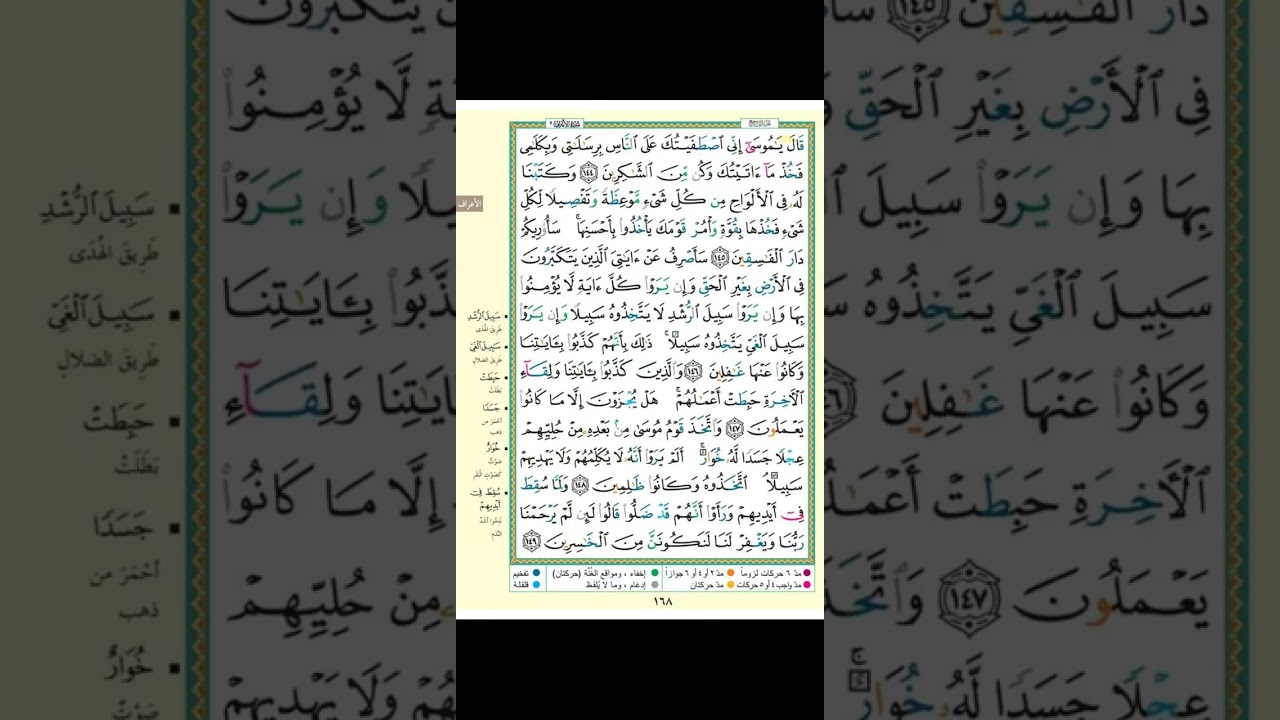 سورة الأعراف ٧
قَالَ يَـٰمُوسَىٰٓ إِنِّى ٱصْطَفَيْتُكَ عَلَى ٱلنَّاسِ بِرِسَـٰلَـٰتِى وَبِكَلَـٰمِى
فَخُذْ مَآ ءَاتَيْتُكَ وَكُن مِّنَ ٱلشَّـٰكِرِينَ ١٤٤ وَكَتَبْنَا
لَهُۥ فِى ٱلْأَلْوَاحِ مِن كُلِّ شَىْءٍ مَّوْعِظَةً وَتَفْصِيلًا لِّكُلِّ
شَىْءٍ فَخُذْهَا بِقُوَّةٍ وَأْمُرْ قَوْمَكَ يَأْخُذُوا۟ بِأَحْسَنِهَا ۚ سَأُو۟رِيكُمْ
دَارَ ٱلْفَـٰسِقِينَ ١٤٥ سَأَصْرِفُ عَنْ ءَايَـٰتِىَ ٱلَّذِينَ يَتَكَبَّرُونَ
فِى ٱلْأَرْضِ بِغَيْرِ ٱلْحَقِّ وَإِن يَرَوْا۟ كُلَّ ءَايَةٍ لَّا يُؤْمِنُوا۟
بِهَا وَإِن يَرَوْا۟ سَبِيلَ ٱلرُّشْدِ لَا يَتَّخِذُوهُ سَبِيلًا وَإِن يَرَوْا۟
سَبِيلَ ٱلْغَىِّ يَتَّخِذُوهُ سَبِيلًا ۚ ذَٰلِكَ بِأَنَّهُمْ كَذَّبُوا۟ بِـَٔايَـٰتِنَا
وَكَانُوا۟ عَنْهَا غَـٰفِلِينَ ١٤٦ وَٱلَّذِينَ كَذَّبُوا۟ بِـَٔايَـٰتِنَا وَلِقَآءِ
ٱلْـَٔاخِرَةِ حَبِطَتْ أَعْمَـٰلُهُمْ ۚ هَلْ يُجْزَوْنَ إِلَّا مَا كَانُوا۟
يَعْمَلُونَ ١٤٧ وَٱتَّخَذَ قَوْمُ مُوسَىٰ مِنۢ بَعْدِهِۦ مِنْ حُلِيِّهِمْ
عِجْلًا جَسَدًا لَّهُۥ خُوَارٌ ۚ أَلَمْ يَرَوْا۟ أَنَّهُۥ لَا يُكَلِّمُهُمْ وَلَا يَهْدِيهِمْ
سَبِيلًا ۘ ٱتَّخَذُوهُ وَكَانُوا۟ ظَـٰلِمِينَ ١٤٨ وَلَمَّا سُقِطَ
فِىٓ أَيْدِيهِمْ وَرَأَوْا۟ أَنَّهُمْ قَدْ ضَلُّوا۟ قَالُوا۟ لَئِن لَّمْ يَرْحَمْنَا
رَبُّنَا وَيَغْفِرْ لَنَا لَنَكُونَنَّ مِنَ ٱلْخَـٰسِرِينَ ١٤٩
الأعراف
سَبِيلَ ٱلرُّشْدِ
طَرِيقَ الهُدَى
سَبِيلَ ٱلْغَىِّ
طَرِيقَ الضلالِ
حَبِطَتْ
بَطَلَتْ
جَسَدًا
أحْمَرَ من
ذهب
خُوَارٌ
صَوْتٌ
كَصَوْتِ البَقَرِ
سُقِطَ فِى
أَيْدِيهِمْ
نَدِمُوا أشدَّ
النَّدَم
مدّ ٦ حركات لزوماً مدّ ٢ أو ٤ أو ٦ جوازاً إخفاء ، ومواقع الغُنَّة (حركتان) تفخيم
مدّ واجب ٤ أو ٥ حركات مدّ حركتان إدغام ، وما لا يُلفَظ قلقلة
١٦٨